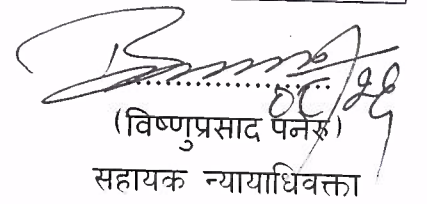 (विष्णुप्रसाद पनेरू)
सहायक न्यायाधिवक्ता